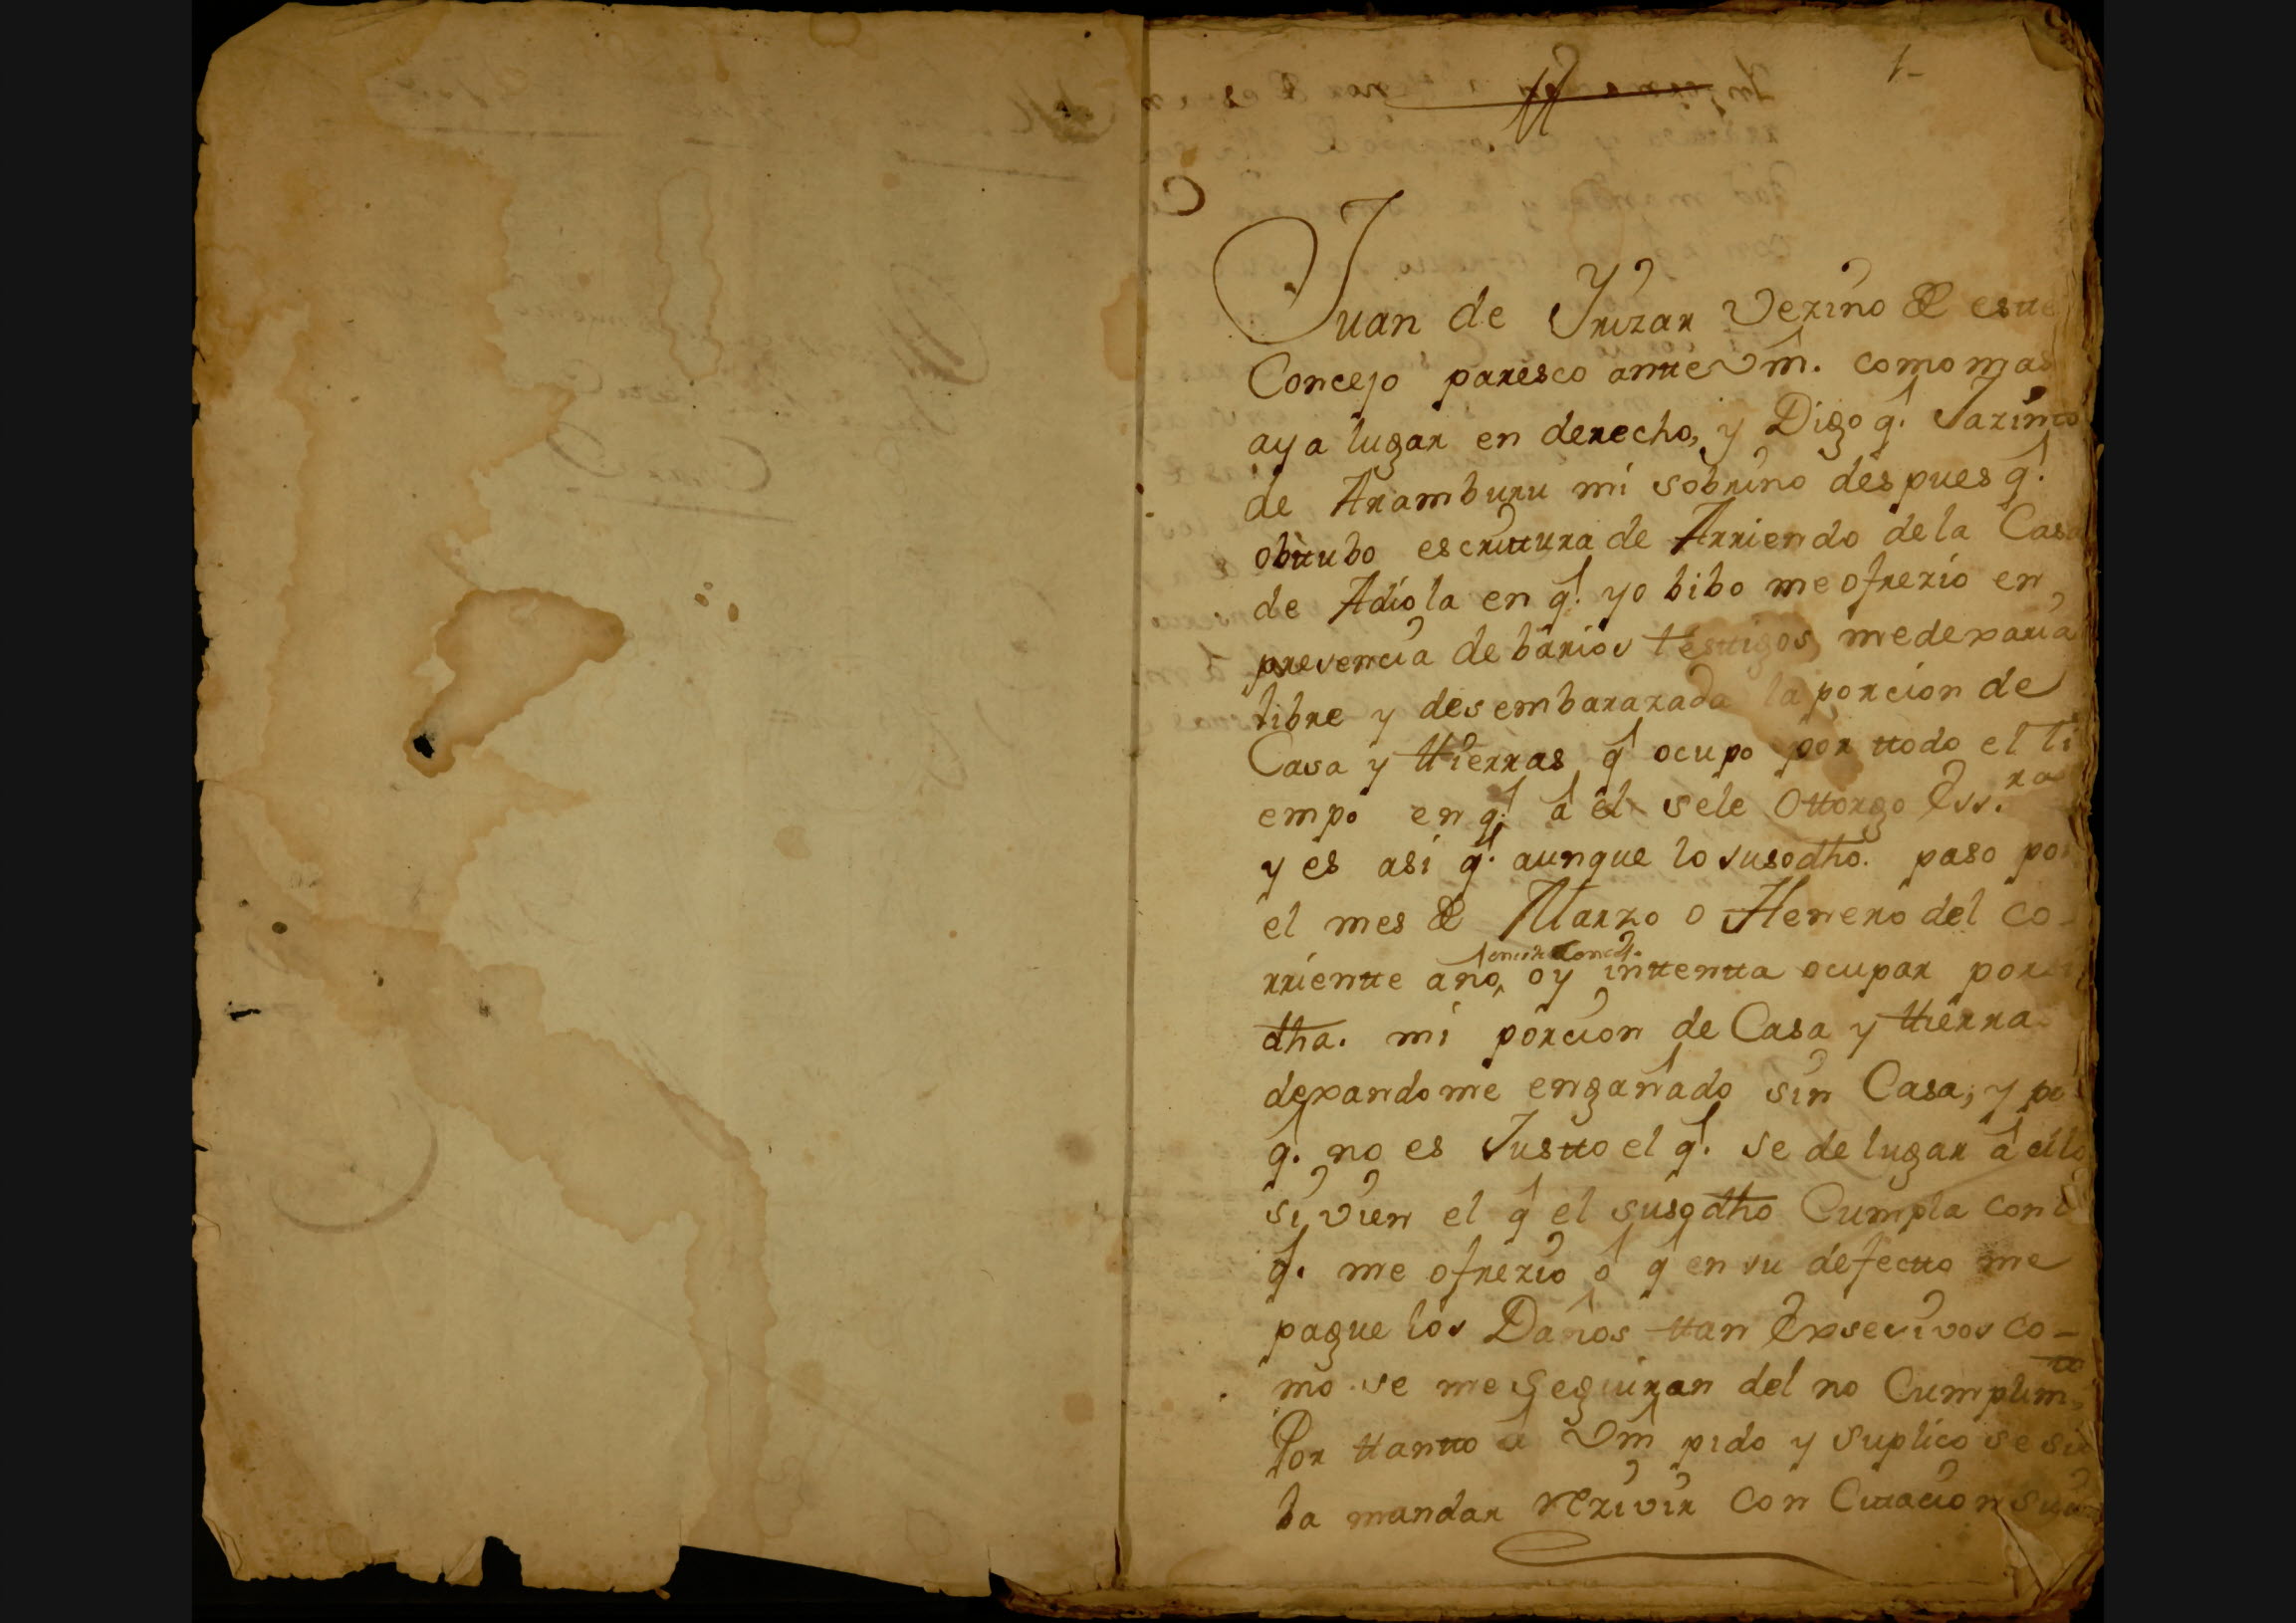 1-
Juan de Yrizar Vezino de este
Concejo paresco antte Vm. como mas
aya lugar en derecho, y Digo q. Jazinto
de Aramburu mi sobrino despues q.
obttubo escrittura de Arriendo de la Casa
de Adiola en q. yo bibo me ofrezio en
presencia de barios testtigos, me dexaria
libre y desembarazada la porcion de
Casa y ttierras q ocupo por ttodo el ti
empo en q. a el sele Ottorgo Ess.ra
y es asi q. aunque lo susodho. paso por
el mes de Marzo o Henero del co-
rriente año, oy inttentta ocupar
dha. mi porcion de Casa y ttierra
dexandome engañado sin Casa; y por
q. no es Justto el q. se de lugar a ello
si vien el q el susodho Cumpla con l
q. me ofrezio o q en su defectto me
pague los Daños ttan Exsesivos co-
mo se me seguiran del no Cumplim.to
Por ttantto a Vm pido y suplico se sir
ba mandar rezivir con Cittacion suia